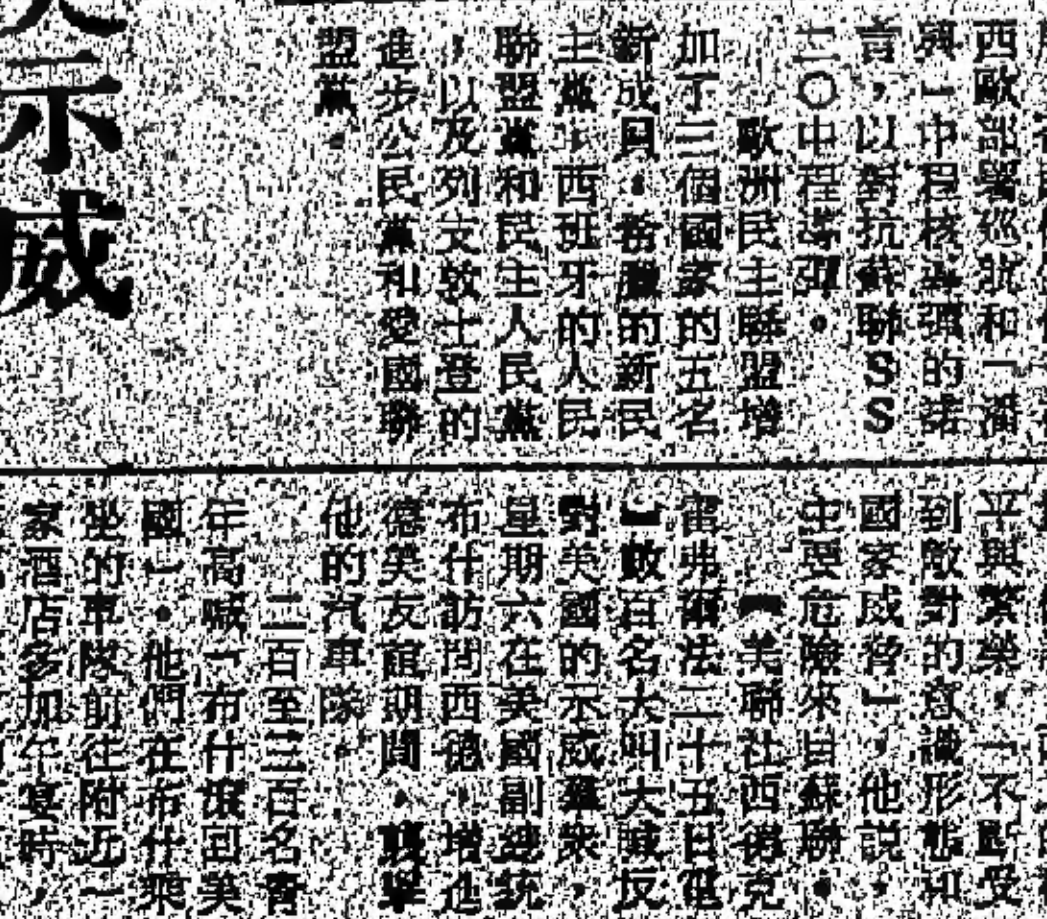 西歐部署巡弋和「潘
興」中程核導彈的諾
言，以對抗蘇聯SS
二〇中程導彈。
歐洲民主聯盟增
加了三個國家的五名
新成員。葡　的新民
主黨；西班牙的人民
聯盟黨和民主人民黨
，以及列支敦士登的
進步公民黨和愛國聯
盟黨。
示威
平與繁榮，一不斷受
到敵對的意識形態和
國家威脅」，他説，
主要危險來自蘇聯。
【美聯社西德克
雷弗爾法二十五日電
】數百名大叫大喊反
對美國的示威羣衆，
星期六在美國副總統
布什訪問西德，增進
德美友誼期間，襲擊
他的汽車隊。
二百至三百名青
年高喊「布什滾回美
國」。他們在布什乘
坐的車隊前往附近一
家酒店參加午宴時，